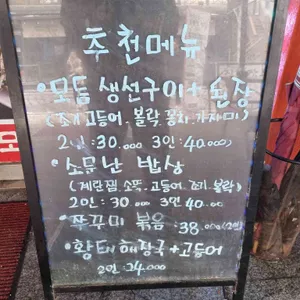 추천메뉴
•모듬 생선구이+된장
(조기.고등어.볼락.꽁치.가자미)
2인:30.000 3인:40.000
•소문난 밥상
(계란찜.소품.고등어.조기.볼락)
2인:30.000 3인:40.00
•쭈꾸미 볶음:38.000(2인)
•황태해장국+고등어
2인:24.000